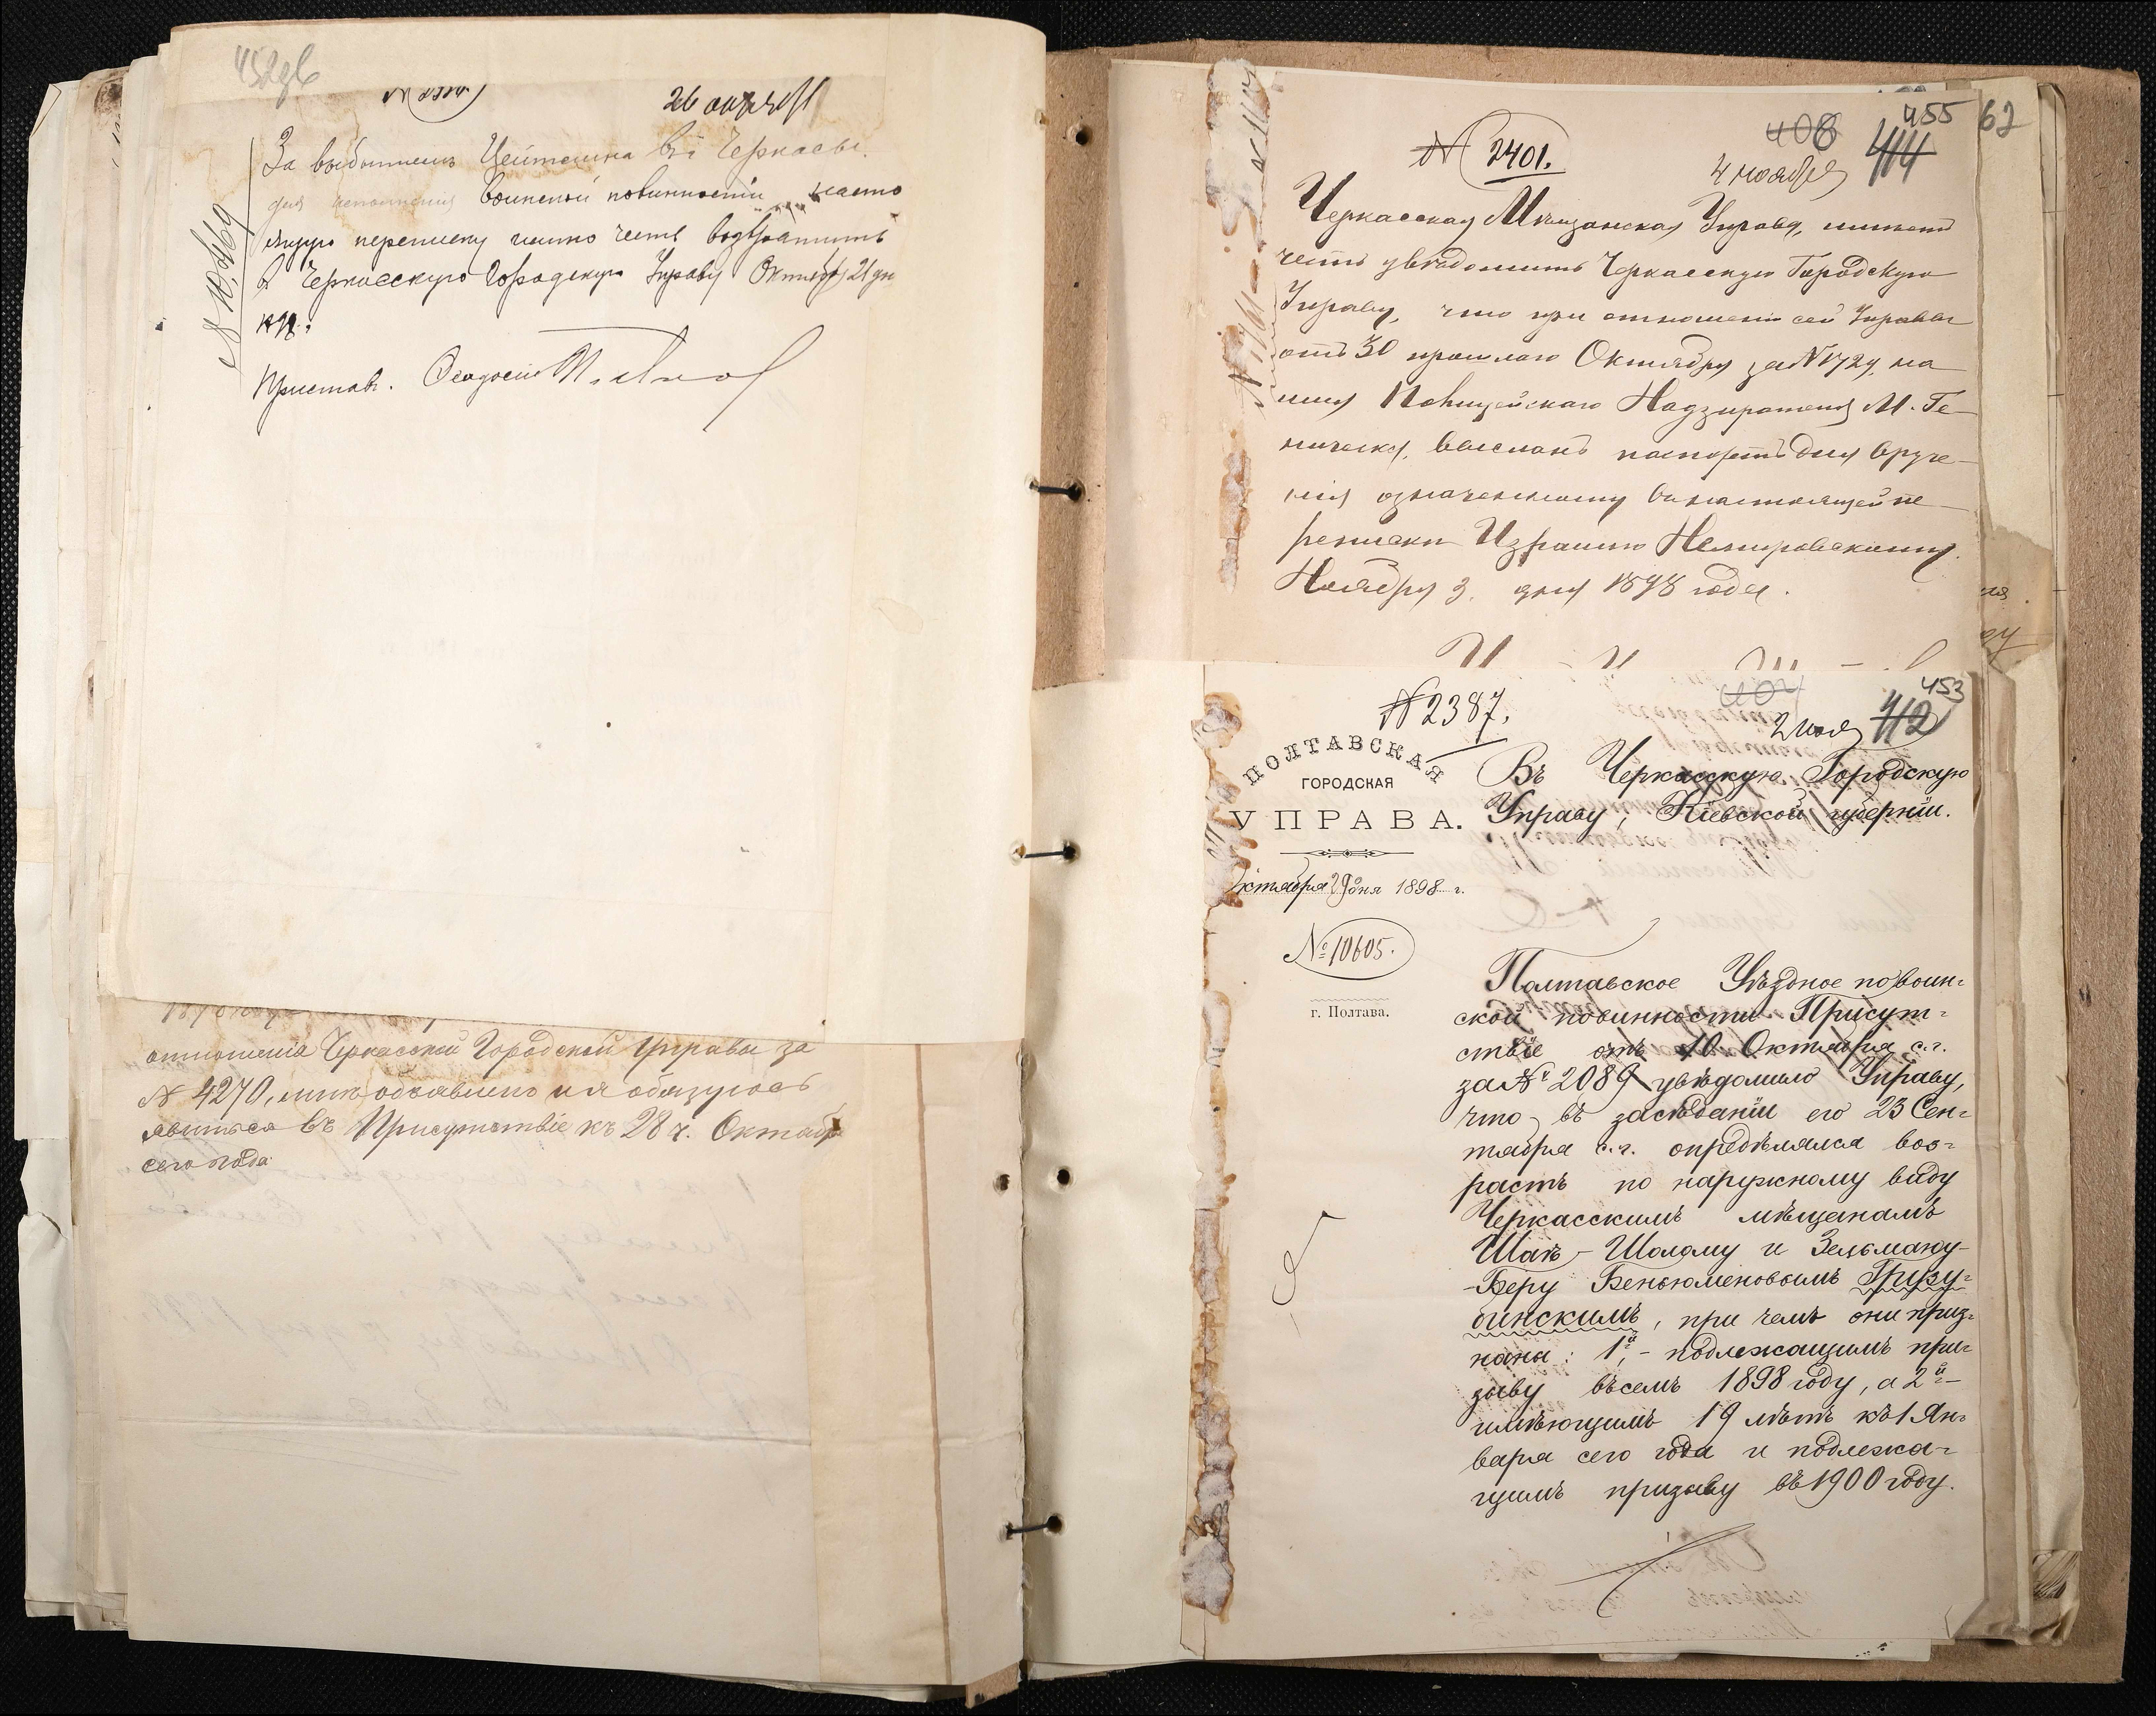 452об
26 октяб
За выбытием Цейтлина въ Черкасы
для исполнения воинской повинности насто
ящую переписку имею честь возвратить
в Черкасскую Городскую Управу Октября 21 дня
Приставъ.
отношения Черкасской Городской Управы за
№ 4270, мне объявлено и я обязуюсь
явиться въ Присутствіе къ 28 ч. Октября
сего года
62
455
408
414
№ 2401.
4 ноября
Черкасская Мѣщанская Управа, имѣетъ
честь увѣдомить Черкасскую Городскую
Управу, что при отношеніи сей Управы
отъ 30 прошлаго Октября за № 1729, на
имя Полицейскаго Надзирателя М. Ге-
ническа, высланъ паспортъ для вруче-
нія означенному въ настоящей пе-
реписки Израилю Немировскому.
Ноября 3 дня 1898 года.
453
404
412
№ 2387.
2 ноя
ПОЛТАВСКАЯ
ГОРОДСКАЯ
УПРАВА.
Въ Черкасскую Городскую
Управу, Кіевской губерніи.
Октября 29 дня 1898 г.
№ 10605.
г. Полтава.
Полтавское Уѣздное по воин-
ской повинности Присут-
ствіе отъ 10 Октября с.г.
за № 2089 увѣдомило Управу,
что въ засѣданіи его 23 Сен-
тября с.г. опредѣлялся воз-
растъ по наружному виду
Черкасскимъ мѣщанамъ
Шае-Шолому и Зельману-
-Беру Беньюменовымъ Грузу-
бинскимъ, при чемъ они приз-
наны: 1й,- подлежащимъ при-
зыву въ семъ 1898 году, а 2й-
имѣющимъ 19 лѣтъ къ 1 Ян-
варя сего года и подлежа-
щимъ призыву въ 1900 году.